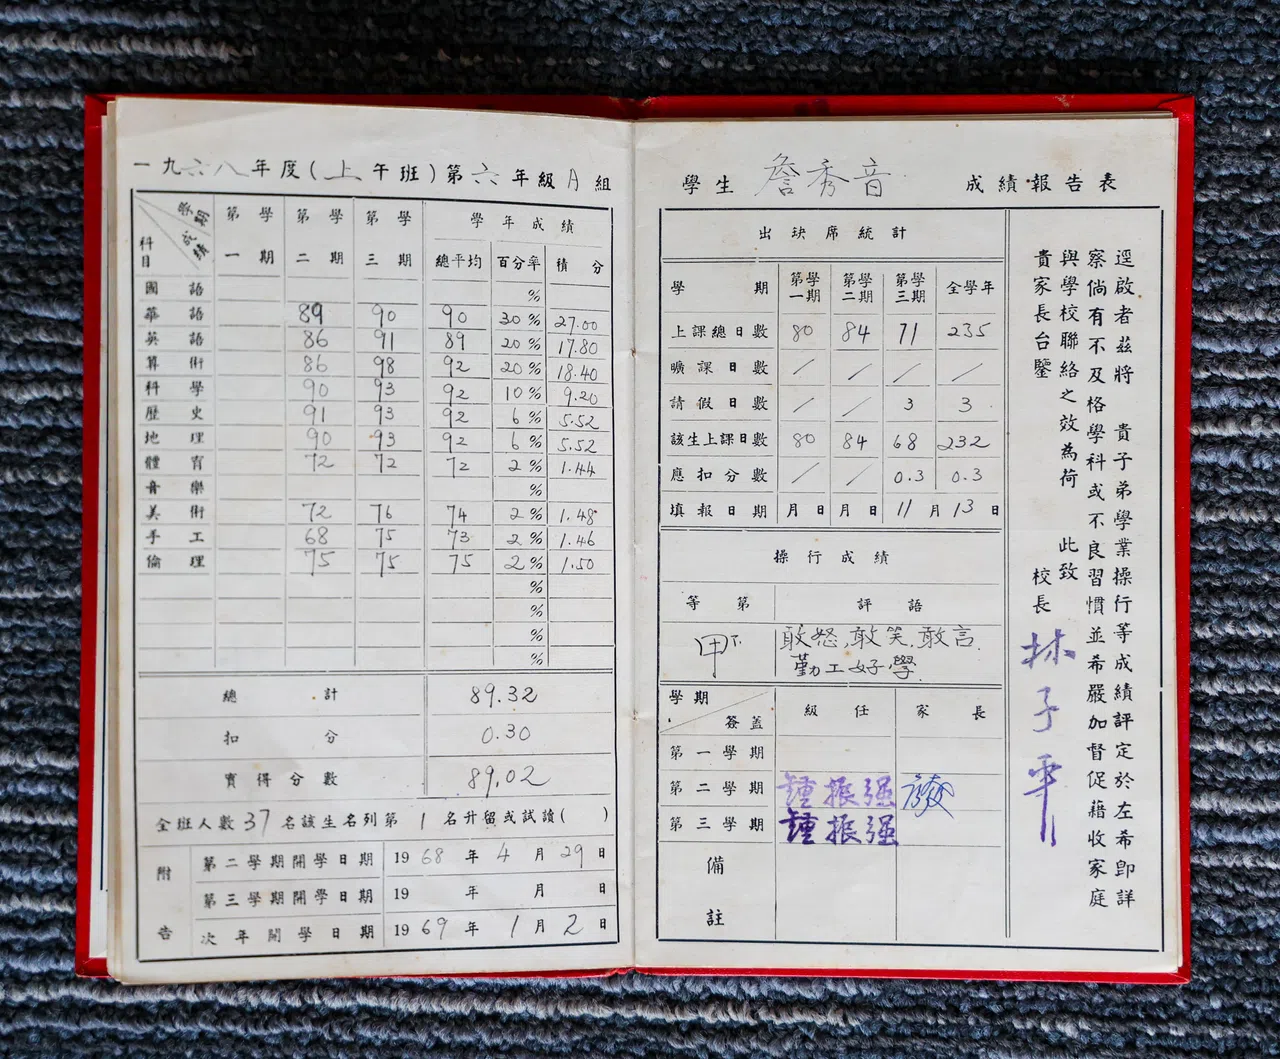 一九六八年度(上午班)第六年級A組
學期 成績 科目 第學一期 第學二期 第學三期 學年成績
總平均 百分率 積分
國語 %
華語 89 90 90 30% 27.00
英語 86 91 89 20% 17.80
算術 86 98 92 20% 18.40
科學 90 93 92 10% 9.20
歷史 91 93 92 6% 5.52
地理 90 93 92 6% 5.52
體育 72 72 72 2% 1.44
音樂 %
美術 72 76 74 2% 1.48
手工 68 75 73 2% 1.46
倫理 75 75 75 2% 1.50
%
%
%
%
總計 89.32
扣分 0.30
實得分數 89.02
全班人數37名該生名列第1名升留或試讀( )
附告
第二學期開學日期 1968年4月29日
第三學期開學日期 19 年 月 日
次年開學日期 1969年1月2日
學生 詹秀音 成績報告表
出玦席統計
學期 第學一期 第學二期 第學三期 全學年
上課總日數 80 84 71 235
曠課日數 / / / /
請假日數 / / 3 3
該生上課日數 80 84 68 232
應扣分數 / / 0.3 0.3
填報日期 月日 月日 11月13日
操行成績
等第 評語
甲下 敢怒,敢笑,敢言.
勤工好學.
學期 簽蓋 級任 家長
第一學期
第二學期 鍾振强
第三學期 鍾振强
備註
逕啟者茲將 貴子弟學業操行等成績評定於左希卽詳
察倘有不及格學科或不良習慣並希嚴加督促藉收家庭
與學校聯絡之效為荷 此致
貴家長台鑒
校長 林子平